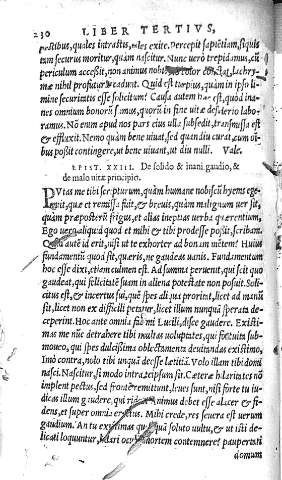 230 LIBER TERTIVS,
pestibus, quales intrastis, tales exite. Percepit sapientiam, si quis
tam securus moritur, quàm nascitur. Nunc verò trepidamus, cùm
periculum accessit, non animus nobis color constat, lachry-
mæ nihil profuturæ cadunt. Quid est turpius, quàm in ipso li-
mine securitatis esse solicitum? Causa autem hæc est, quòd ina-
nes omnium bonorū sumus, quorū in fine vitæ desiderio labo-
ramus. Non enim apud nos pars eius vlla subsedit, transmissa est
& effluxit. Nemo quàm bene viuat, sed quandiu curat, cum om-
nibus possit contingere, vt bene viuant, vt diu nulli. Vale.
EPIST. XXIII. De solido & inani gaudio, &
de malo vitæ principio.
PVtas me tibi scripturum, quàm humane nobiscū hyems ege-
rit, quæ et remissa fuit, & breuis, quàm malignum ver sit,
quàm præposterū frigus, et alias ineptias verba quærentium,
Ego vero aliquid quod et mihi & tibi prodesse possit, scribam.
Quid autē id erit, nisi vt te exhorter ad bonam mētem? Huius
fundamentū quod sit, quæris, ne gaudeas vanis. Fundamentum
hoc esse dixi, etiam culmen est. Ad summa peruenit, qui scit quo
gaudeat, qui felicitatē suam in aliena potestate non posuit. Soli-
citus est, & incertus sui, quē spes aliqua proritat, licet ad manū
sit, licet non ex difficili petatur, licet illum nunquā sperata de-
ceperint. Hoc ante omnia fac mi Lucili, disce gaudere. Existi-
mas me nūc detrahere tibi multas voluptates, qui fortuita sub-
moueo, qui spes dulcissima oblectamenta deuitandas existimo,
Imò contrà, nolo tibi unquā deesse lætitiā. Volo illam tibi domi
nasci. Nascitur, si modo intra teipsum sit. Cæteræ hilaritates nō
implent pectus, sed frontē remittunt, leues sunt, nisi forte tu iu-
dicas illum gaudere, qui ridet. Animus debet esse alacer & fi-
dens, et super omnia erectus. Mihi crede, res seuera est verum
gaudium. An tu existimas quēquā soluto vultu, & vt isti de-
licati loquuntur, hilari oculo mortem contemnere? paupertati
domum